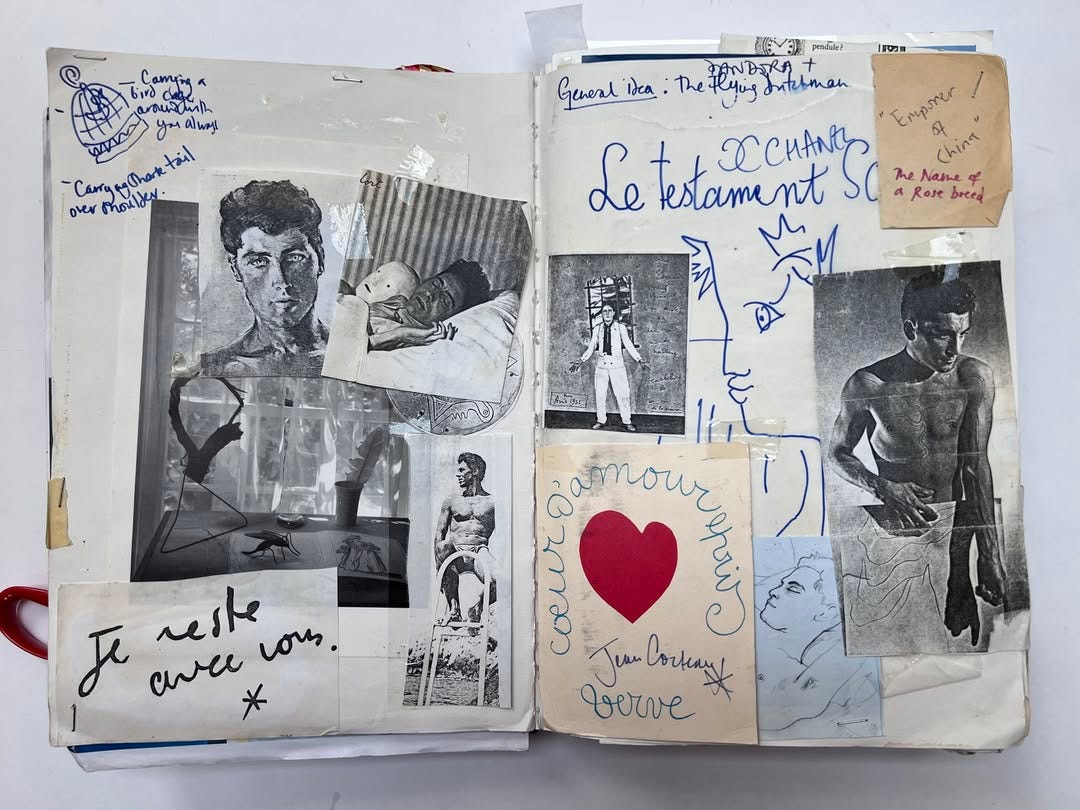 - Carrying a
bird cage
around with
you always
- Carrying shark tail
over shoulder.
lort
Je reste
avec vous.
*
pendule?
PANDORA +
General idea : The Flying Dutchman
XCHANG
Le testament
"Emporer
of
China" !
The Name of
a Rose breed
coeur d'amour épris
Jean Cocteau
*
verve